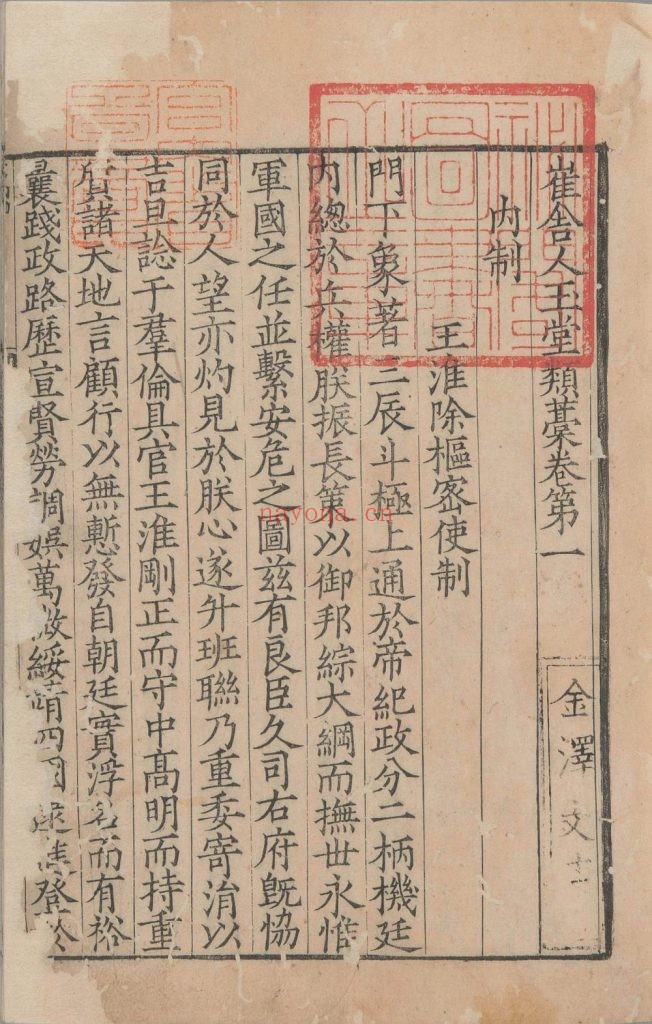 崔舍人玉堂類藁卷第一
内制
王淮除樞宻使制
門下象著三辰斗極上通於帝紀政分二柄機廷
内總於兵權朕振長策以御邦綜大綱而撫世永惟
軍國之任並繫安危之圖兹有良臣久司右府旣恊
同於人望亦灼見於朕心遂升班聮乃重委寄涓以
吉旦諗于羣倫具官王淮剛正而守中髙明而持重
質諸天地言顧行以無慙發自朝廷實浮名而有裕
曩踐政路歷宣賢勞調娛萬 綏靖四 登於
金澤文
nayona.cn